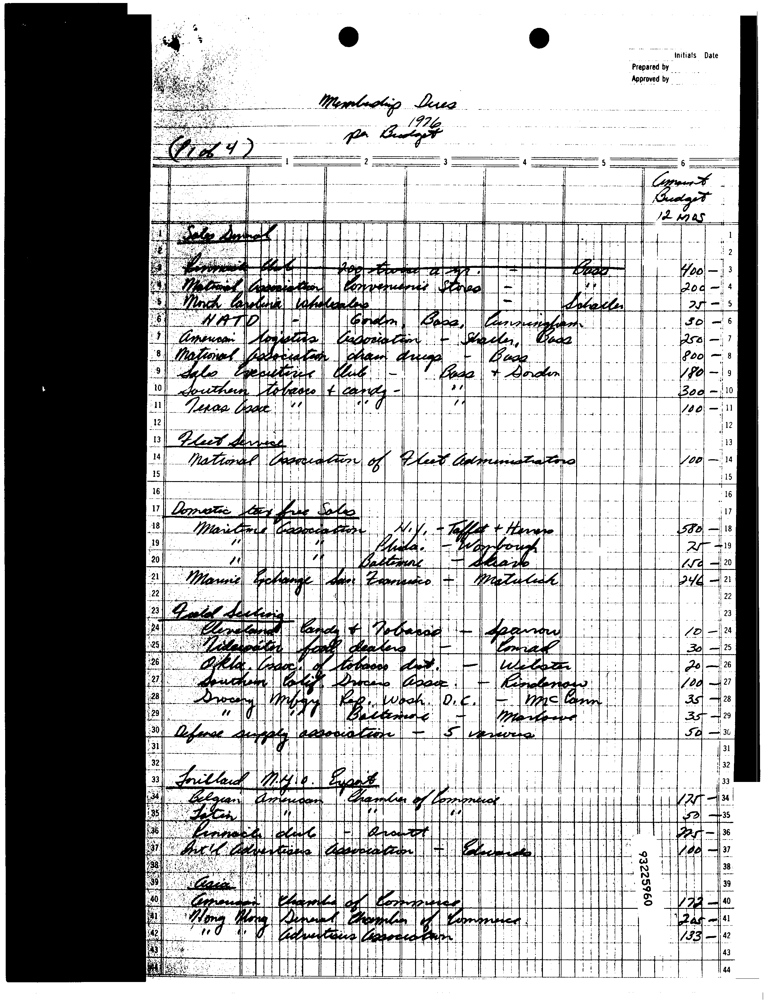 Initials Date
Prepared by
Approved by
Membership Dues
1976
per Budget
(P1 of 4)
1 2 3 4 5 6
Amount
Budget
12 mos
1 Sales General 1
2 2
3 Pinnacle Club 200 twice a yr. - Bass 400 - 3
4 National Association Convenience Stores - " 200 - 4
5 North Carolina Wholesalers - Schaller 25 - 5
6 NATD - Gordon, Bass, Cunningham 30 - 6
7 American Logistics Association - Bass 250 - 7
8 National Association chain drugs - Bass 800 - 8
9 Sales Executive Club - Bass + Gordon 180 - 9
10 Southern tobacco + candy - " 300 - 10
11 Texas Assoc " " " 100 - 11
12 12
13 Fleet Service 13
14 National Association of Fleet Administrators 100 - 14
15 15
16 16
17 Domestic tax free Sales 17
18 Maritime Association N.Y. - 580 - 18
19 " " Phila. - 25 - 19
20 " " Baltimore - 150 - 20
21 Marine Exchange San Francisco - Matulich 246 - 21
22 22
23 Field Selling 23
24 Cleveland Candy + Tobacco - Sparrow 10 - 24
25 Tidewater food dealers - Conrad 30 - 25
26 Okla. Assoc. of tobacco dist. - Webster 20 - 26
27 Southern Calif Grocers Assoc. - 100 - 27
28 Grocery Mfgr Rep. Wash. D.C. - McCann 35 - 28
29 " " Baltimore - Marlowe 35 - 29
30 Defense supply association - 5 various 50 - 30
31 31
32 32
33 Lorillard N.Y.O. Export 33
34 Belgian American Chamber of Commerce 175 - 34
35 Latin " " " 50 - 35
36 Pinnacle club - 225 - 36
37 Int'l Advertisers Association - Edwards 100 - 37
38 38
39 Asia 39
40 American Chamber of Commerce 172 - 40
41 Hong Kong General Chamber of Commerce 205 - 41
42 " " Advertisers Association 133 - 42
43 43
44 44
93225960